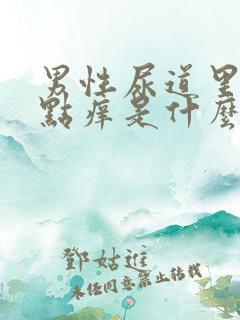 男性尿道里
點痒是什麼
鄧姑進
未经同意禁止转载